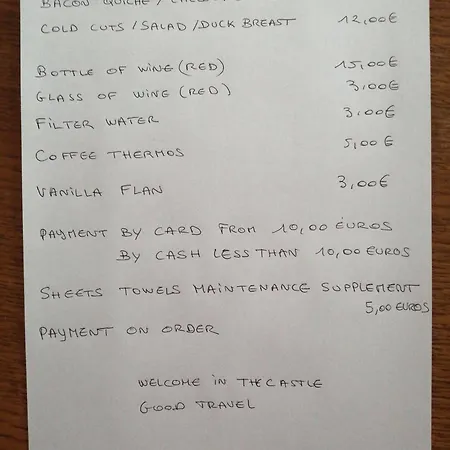 BACON QUICHE /
COLD CUTS / SALAD / DUCK BREAST 12,00€
BOTTLE OF WINE (RED) 15,00€
GLASS OF WINE (RED) 3,00€
FILTER WATER 3,00€
COFFEE THERMOS 5,00€
VANILLA FLAN 3,00€
PAYMENT BY CARD FROM 10,00 EUROS
BY CASH LESS THAN 10,00 EUROS
SHEETS TOWELS MAINTENANCE SUPPLEMENT
5,00 EUROS
PAYMENT ON ORDER
WELCOME IN THE CASTLE
GOOD TRAVEL